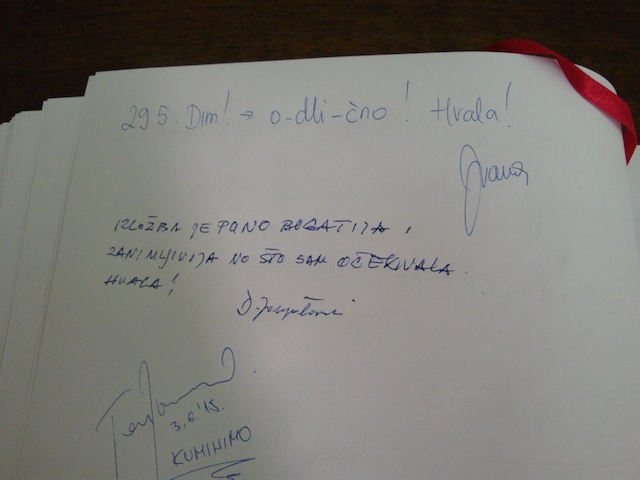 295. Dim! → o-dli-čno! Hvala!
Ivana
IZLOŽBA JE PUNO BOGATIJA I
ZANIMLJIVIJA NO ŠTO SAM OČEKIVALA.
HVALA!
3.6.'15.
KUMIHIMO